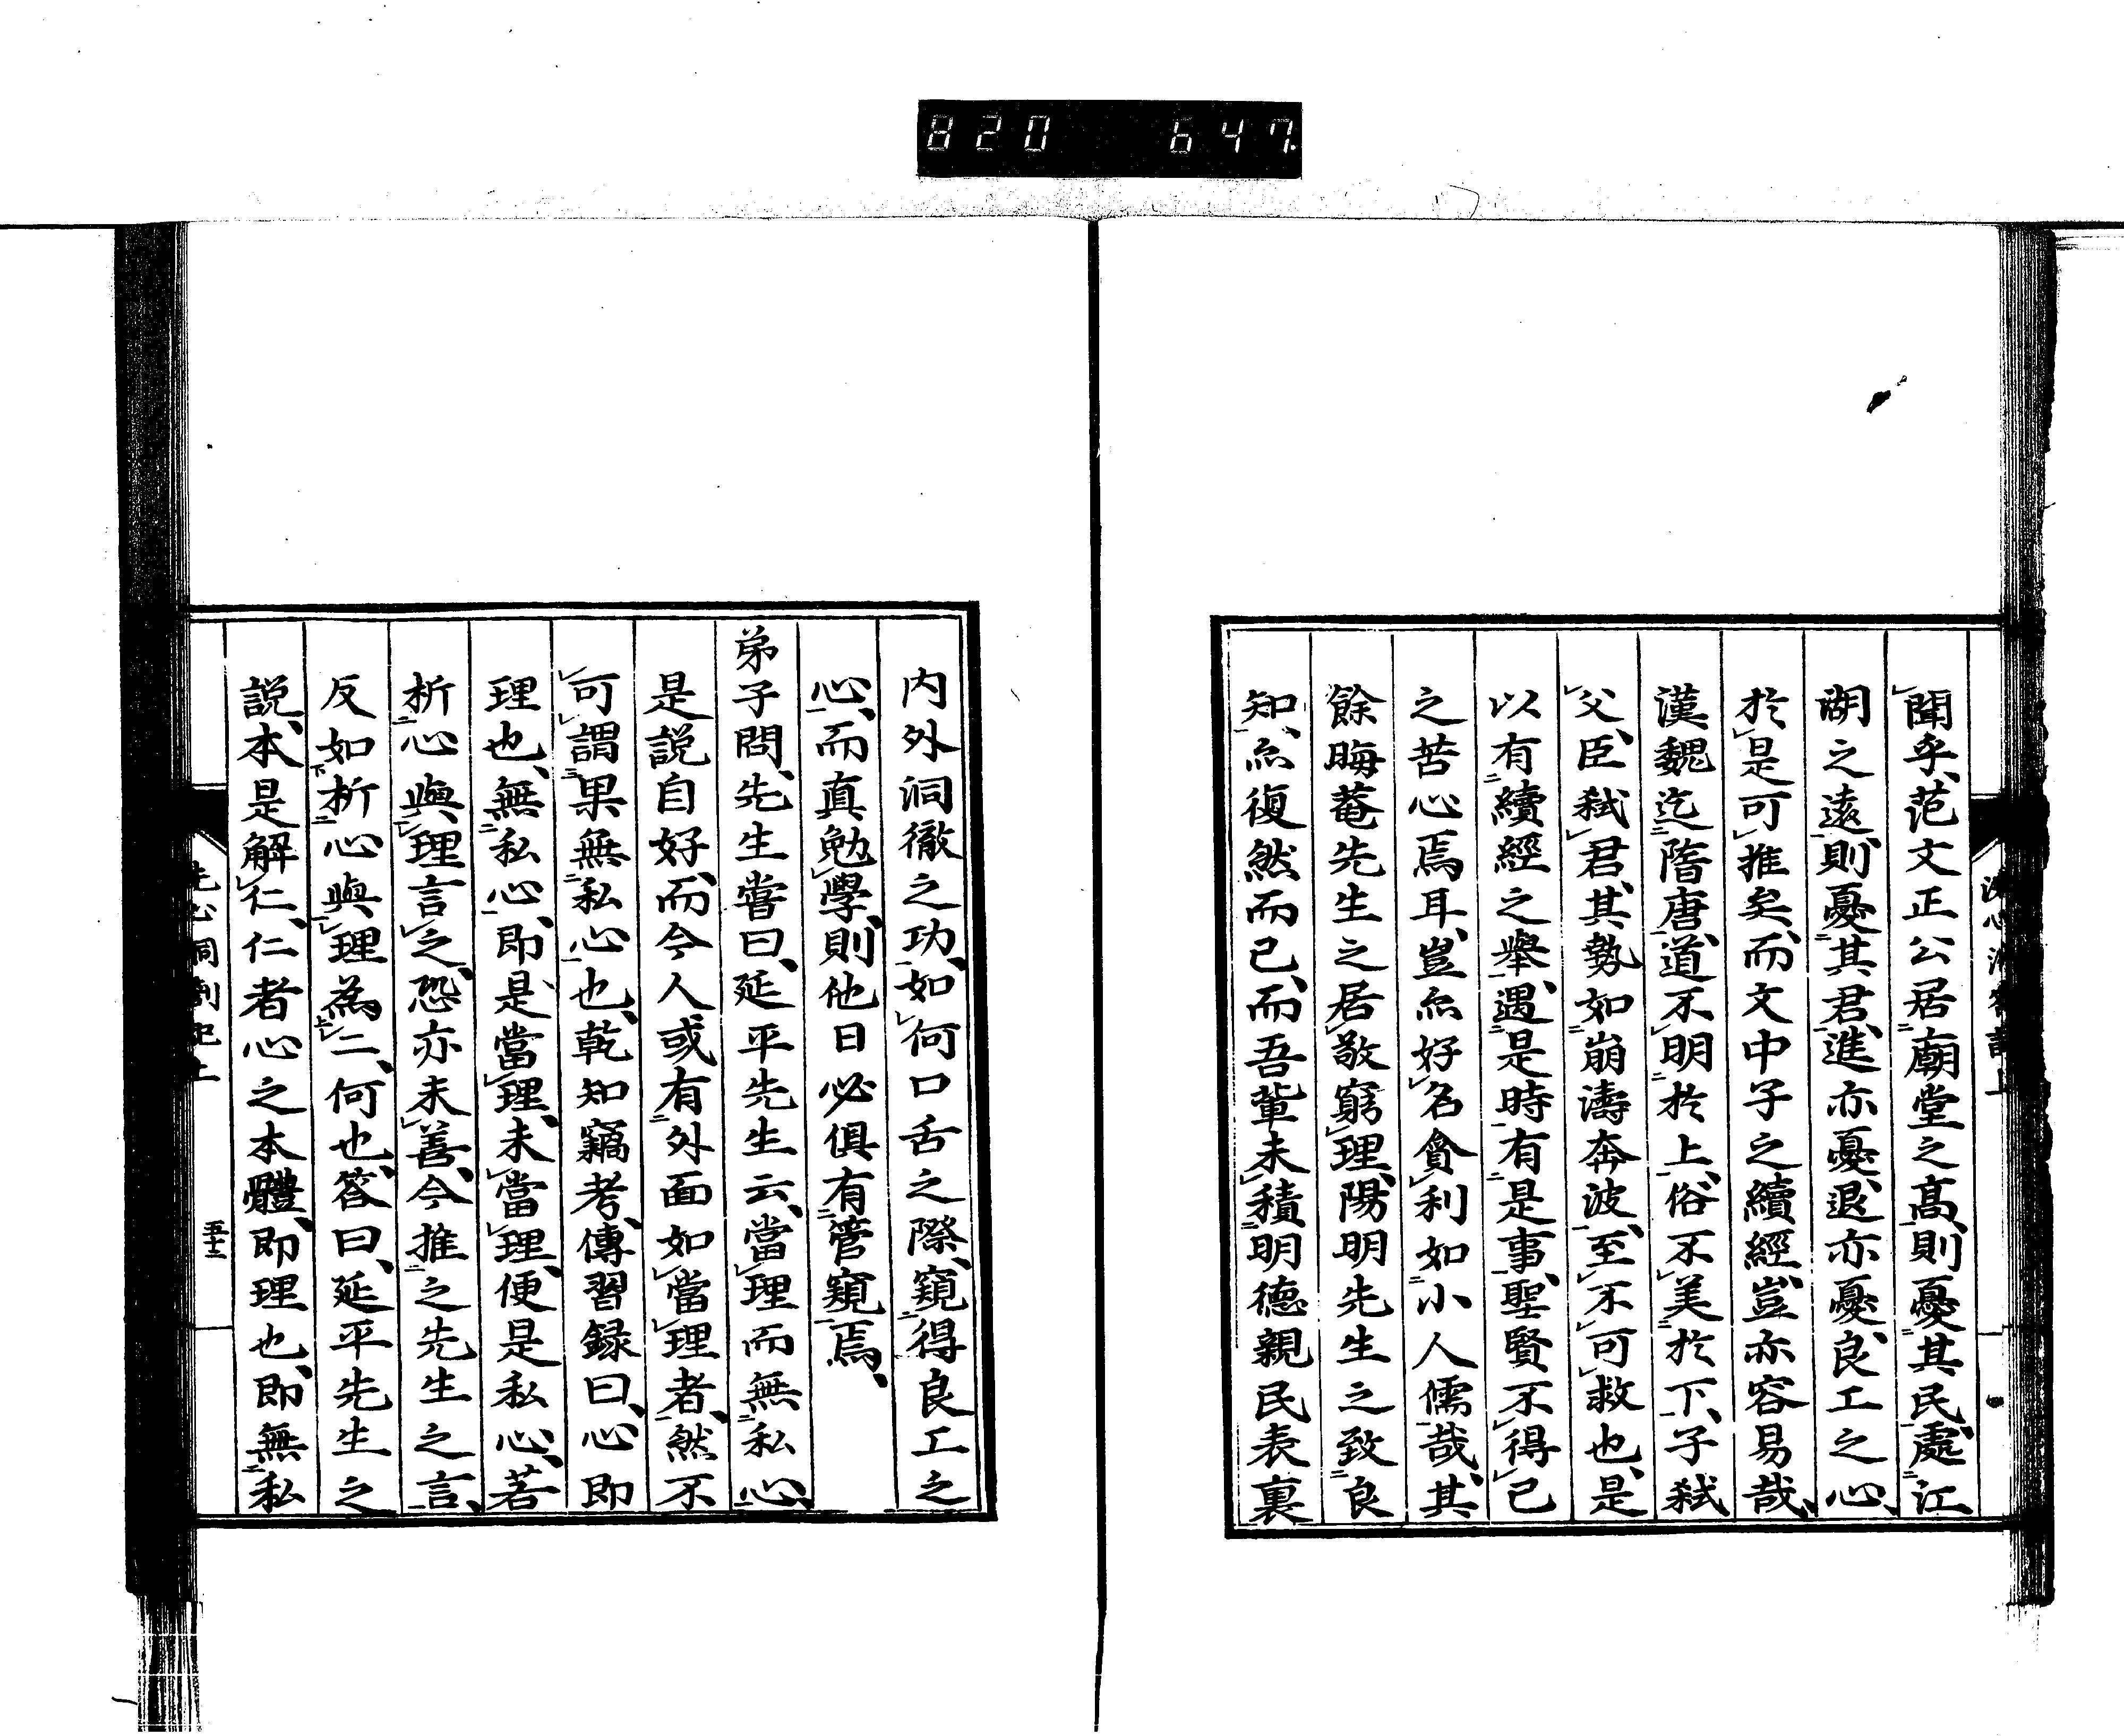 820 647
聞乎、范文正公居廟堂之高、則憂其民、處江
湖之遠、則憂其君、進亦憂、退亦憂、良工之心、
於是可推矣、而文中子之續經、豈亦容易哉、
漢魏迄隋唐、道不明於上、俗不美於下、子弑
父、臣弑君、其勢如崩濤奔波、至不可救也、是
以有續經之舉、遇是時有是事、聖賢不得已
之苦心焉耳、豈亦好名貪利如小人儒哉、其
餘晦菴先生之居敬窮理、陽明先生之致良
知、亦復然而已、而吾輩未積明德親民表裏
内外洞徹之功、如何口舌之際、窺得良工之
心、而真勉學、則他日必俱有管窺焉、
弟子問、先生嘗曰、延平先生云、當理而無私心、
是説自好、而今人或有外面如當理者、然不
可謂果無私心也、乾知竊考、傳習録曰、心即
理也、無私心、即是當理、未當理、便是私心、若
析心與理言之、恐亦未善、今推之先生之言、
反如析心與理為二、何也、答曰、延平先生之
説、本是解仁、仁者心之本體、即理也、即無私
洗心洞劄記上
五十三